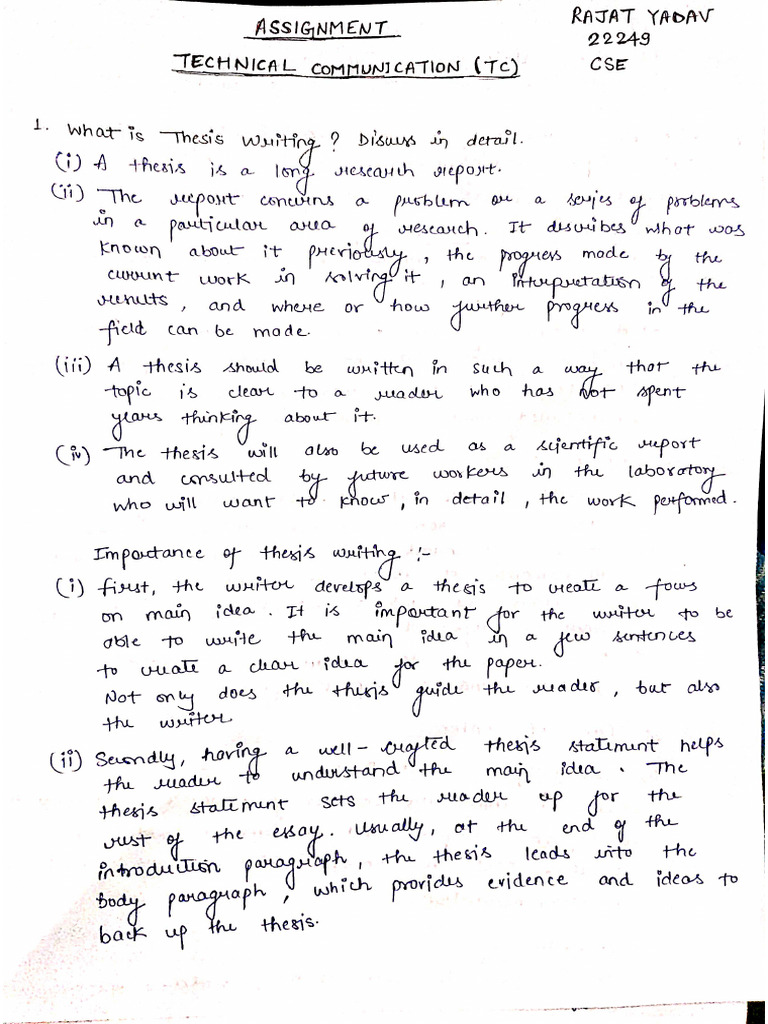 ASSIGNMENT
RAJAT YADAV
22249
CSE
TECHNICAL COMMUNICATION (TC)
1. What is Thesis Writing? Discuss in detail.
(i) A thesis is a long research report.
(ii) The report concerns a problem or a series of problems
in a particular area of research. It describes what was
known about it previously, the progress made by the
current work in solving it, an interpretation of the
results, and where or how further progress in the
field can be made.
(iii) A thesis should be written in such a way that the
topic is clear to a reader who has not spent
years thinking about it.
(iv) The thesis will also be used as a scientific report
and consulted by future workers in the laboratory
who will want to know, in detail, the work performed.
Importance of thesis writing :-
(i) first, the writer develops a thesis to create a focus
on main idea. It is important for the writer to be
able to write the main idea in a few sentences
to create a clear idea for the paper.
Not only does the thesis guide the reader, but also
the writer.
(ii) Secondly, having a well-crafted thesis statement helps
the reader to understand the main idea. The
thesis statement sets the reader up for the
rest of the essay. Usually, at the end of the
introduction paragraph, the thesis leads into the
body paragraph, which provides evidence and ideas to
back up the thesis.